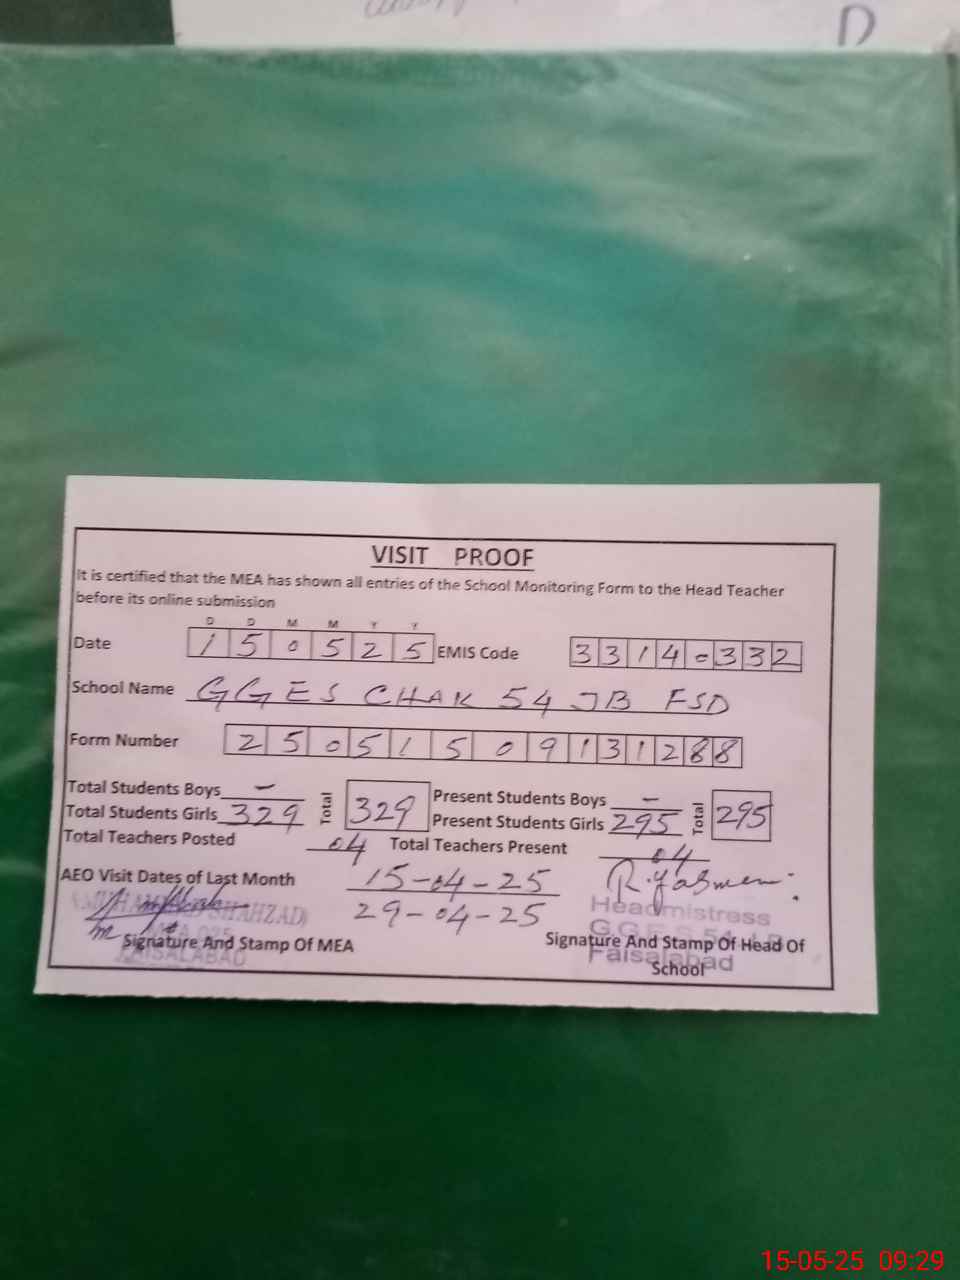 D
VISIT PROOF
It is certified that the MEA has shown all entries of the School Monitoring Form to the Head Teacher
before its online submission
D D M M Y Y
Date 1 5 0 5 2 5 EMIS Code 3 3 1 4 0 3 3 2
School Name GGES CHAK 54 JB FSD
Form Number 2 5 0 5 1 5 0 9 1 3 1 2 8 8
Total Students Boys - Total 329 Present Students Boys - Total 295
Total Students Girls 329 Present Students Girls 295
Total Teachers Posted 04 Total Teachers Present 04
AEO Visit Dates of Last Month 15-04-25 R.Yasmeen
29-04-25
SHAHZAD)
FAISALABAD
Signature And Stamp Of MEA
Headmistress
G.G.E.S 54 J.B
Faisalabad
Signature And Stamp Of Head Of
School
15-05-25 09:29